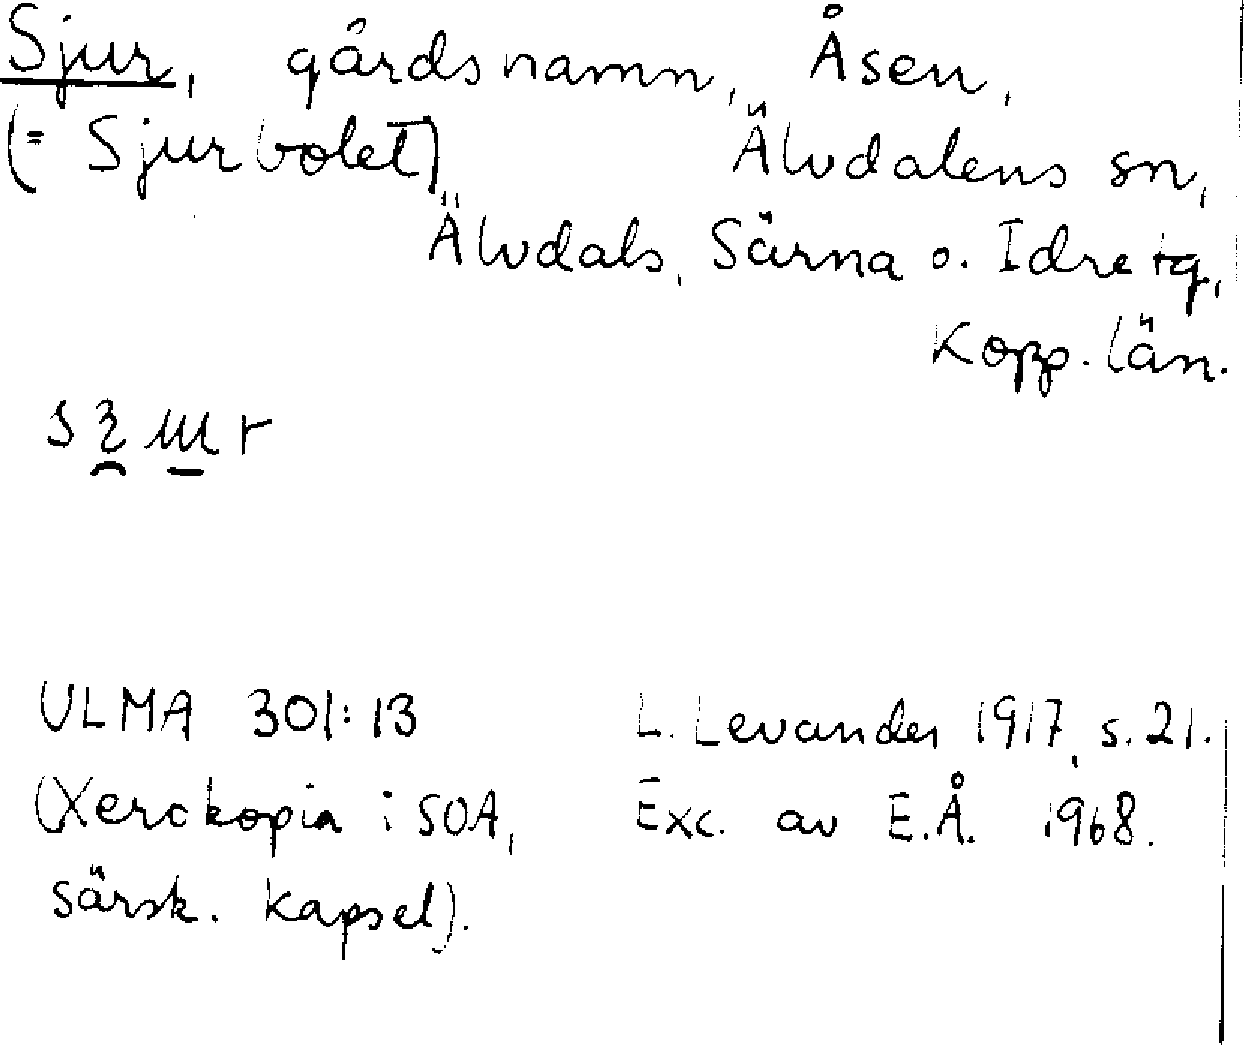 Sjur, gårdsnamn, Åsen,
(= Sjurbolet) Älvdalens sn,
Älvdals, Särna o. Idre tg,
Kopp. län.
ULMA 301:13 L. Levander 1917, s. 21.
(Xerokopia i SOA, Exc. av E.Å. 1968.
särsk. kapsel).